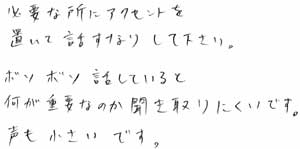 必要な所にアクセントを
置いて話すなりして下さい。
ボソボソ話していると
何が重要なのか聞き取りにくいです。
声も小さいです。